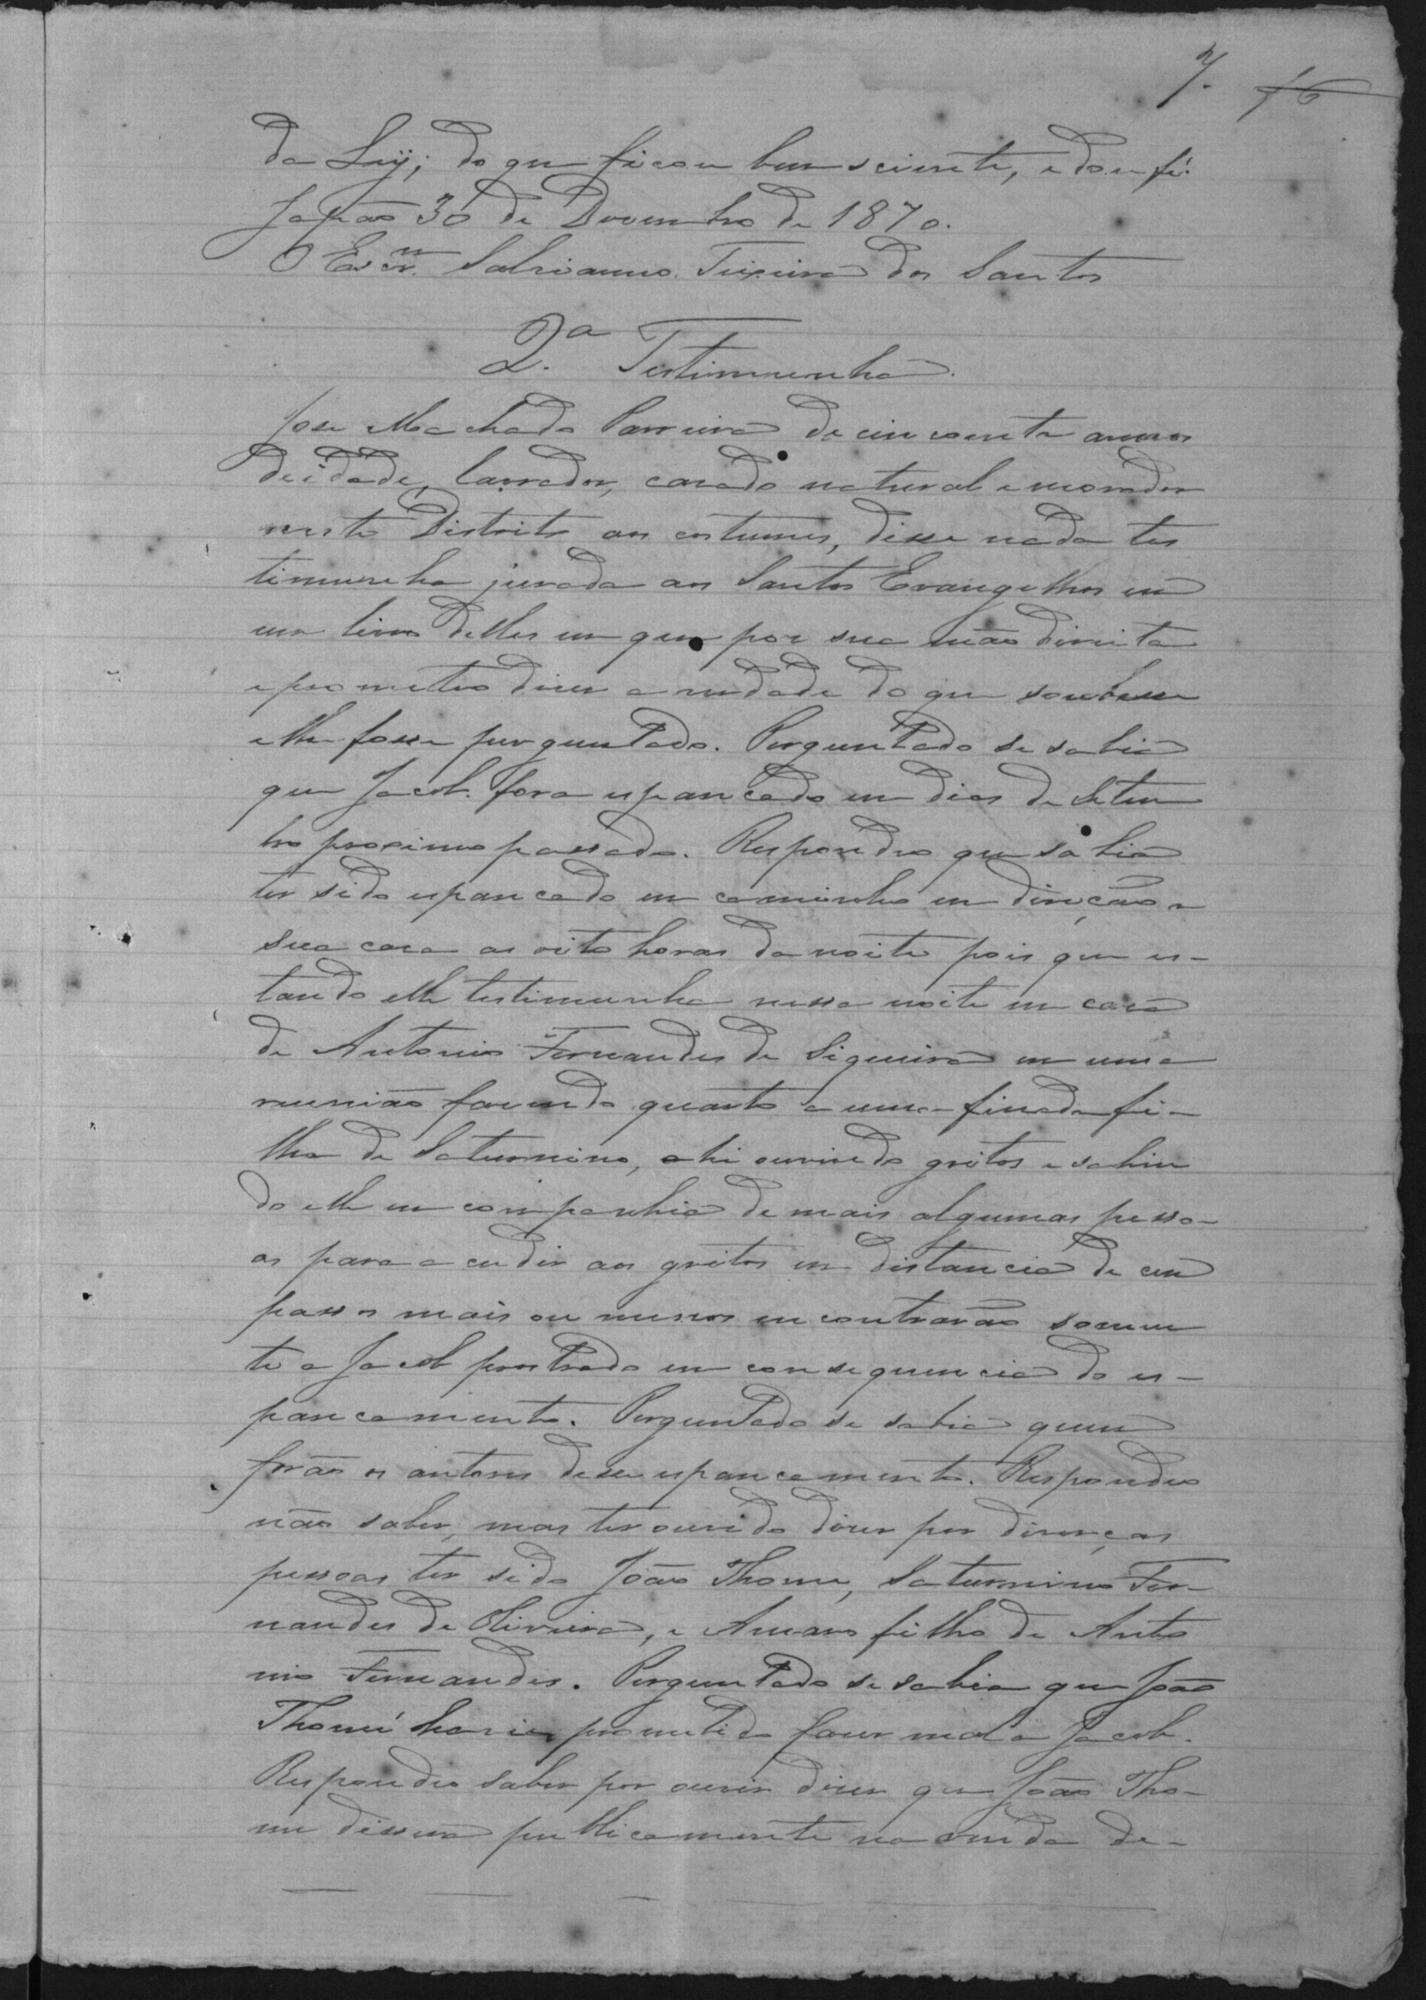 7. 16
da Ley; do que ficou bem sciente, e dou fé.
Japão 30 de Dezembro de 1870.
O Escr.m Salvianno Teixeira dos Santos
2.a Testimunha.
Jose Machado Parreira de cincoenta annos
de idade, lavrador, casado natural e morador
neste Distrito aos costumes, disse nada tes
timunha jurada aos Santos Evangelhos em
um livro delles em que por sua mão direita
e prometteo dizer a verdade do que soubesse
e lhe fosse perguntado. Perguntado se sabia
que Jacob fora espancado em dias de Setem
bro proximo passado. Respondeo que sabia
ter sido espancado em caminho em direcção a
sua casa as oito horas da noite pois que es-
tando elle testimunha nessa noite em casa
de Antonio Fernandes de Siqueira em uma
reunião fazendo quarto a uma finada fi-
lha de Saturnino, ahi ouvindo gritos e sahin
do elle em companhia de mais algumas pesso-
as para acudir aos gritos em distancia de cem
passos mais ou menos encontrarão somen
te a Jacob prostrado em consequencia do es-
pancamento. Perguntado se sabia quem
forão os autores desse espancamento. Respondeo
não saber, mas ter ouvido dizer por diverças
pessoas ter sido João Thome, Saturnino Fer-
nandes de Oliveira, e Amaro filho de Anto
nio Fernandes. Perguntado se sabia que João
Thomé havia promettido fazer mal a Jacob.
Respondeo saber por ouvir dizer que João Tho-
me dissera publicamente na venda de-